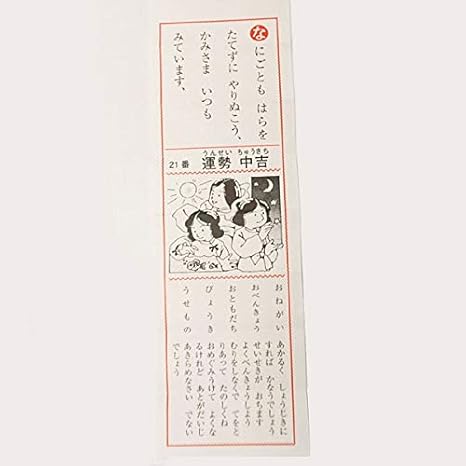 なにごとも はらを
たてずに やりぬこう、
かみさま いつも
みています、
うんせい ちゅうきち
21番 運勢 中吉
おねがい
おべんきょう
おともだち
びょうき
うせもの
あかるく しょうじきに
すれば かなうでしょう
せいせきが おちます
よくべんきょうしよう
むりをしなくで てをと
りあって たのしくね
おめぐみうけて よくな
るけれど あとがだいじ
あきらめなさい でない
でしょう